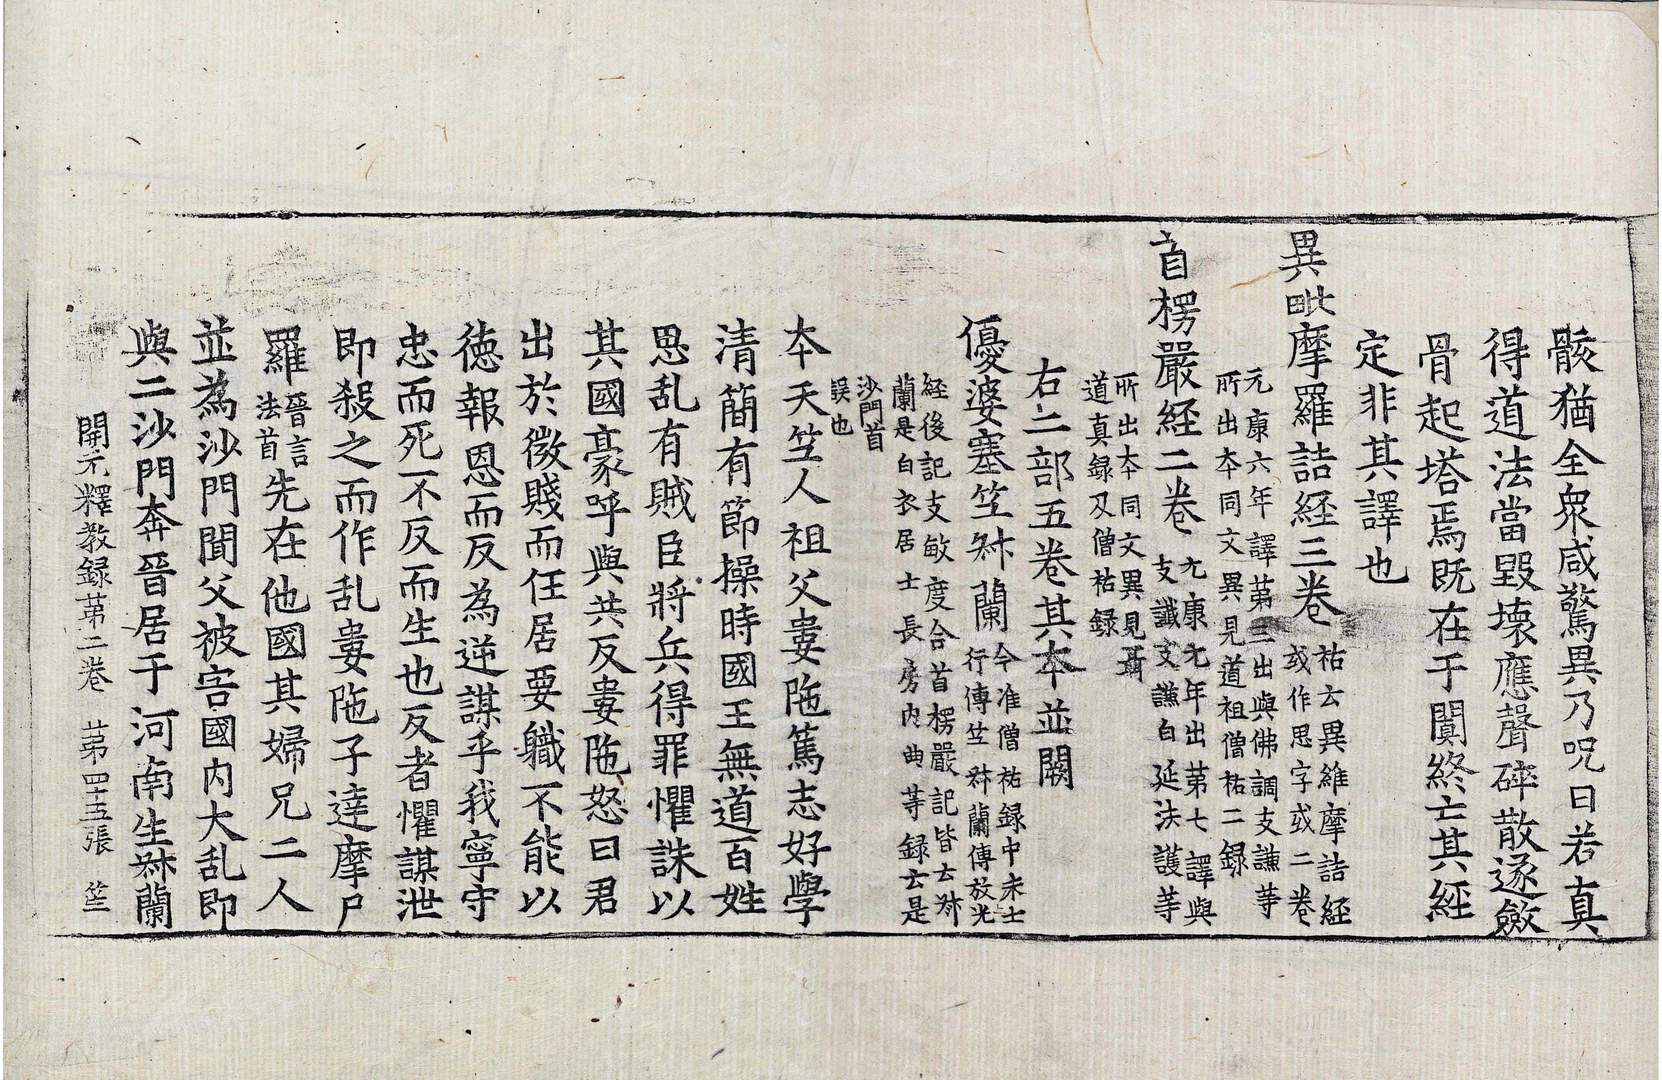 骸猶全衆咸驚異乃呪曰若真
得道法當毀壞應聲碎散遂斂
骨起塔焉既在于闐終亡其經
定非其譯也
異毗摩羅詰経三卷
祐云異維摩詰経
或作思字或二卷
元康六年譯第三出與佛調支謙等
所出本同文異見道祖僧祐二録
首楞嚴経二卷
元康元年出第七譯與
支讖支謙白延法護等
所出本同文異見聶
道真録及僧祐録
右二部五卷其本並闕
優婆塞竺叔蘭
今准僧祐録中朱士
行傳竺叔蘭傳放光
経後記支敏度合首楞嚴記皆云叔
蘭是白衣居士長房内典等録云是
沙門首
誤也
本天竺人祖父婁陁篤志好學
清簡有節操時國王無道百姓
思乱有賊臣將兵得罪懼誅以
其國豪呼與共反婁陁怒曰君
出於微賤而任居要職不能以
徳報恩而反為逆謀乎我寧守
忠而死不反而生也反者懼謀泄
即殺之而作乱婁陁子逹摩尸
羅
晉言
法首
先在他國其婦兄二人
並為沙門聞父被害國内大乱即
與二沙門奔晉居于河南生叔蘭
開元釋教録第二卷 第四十五張 笙